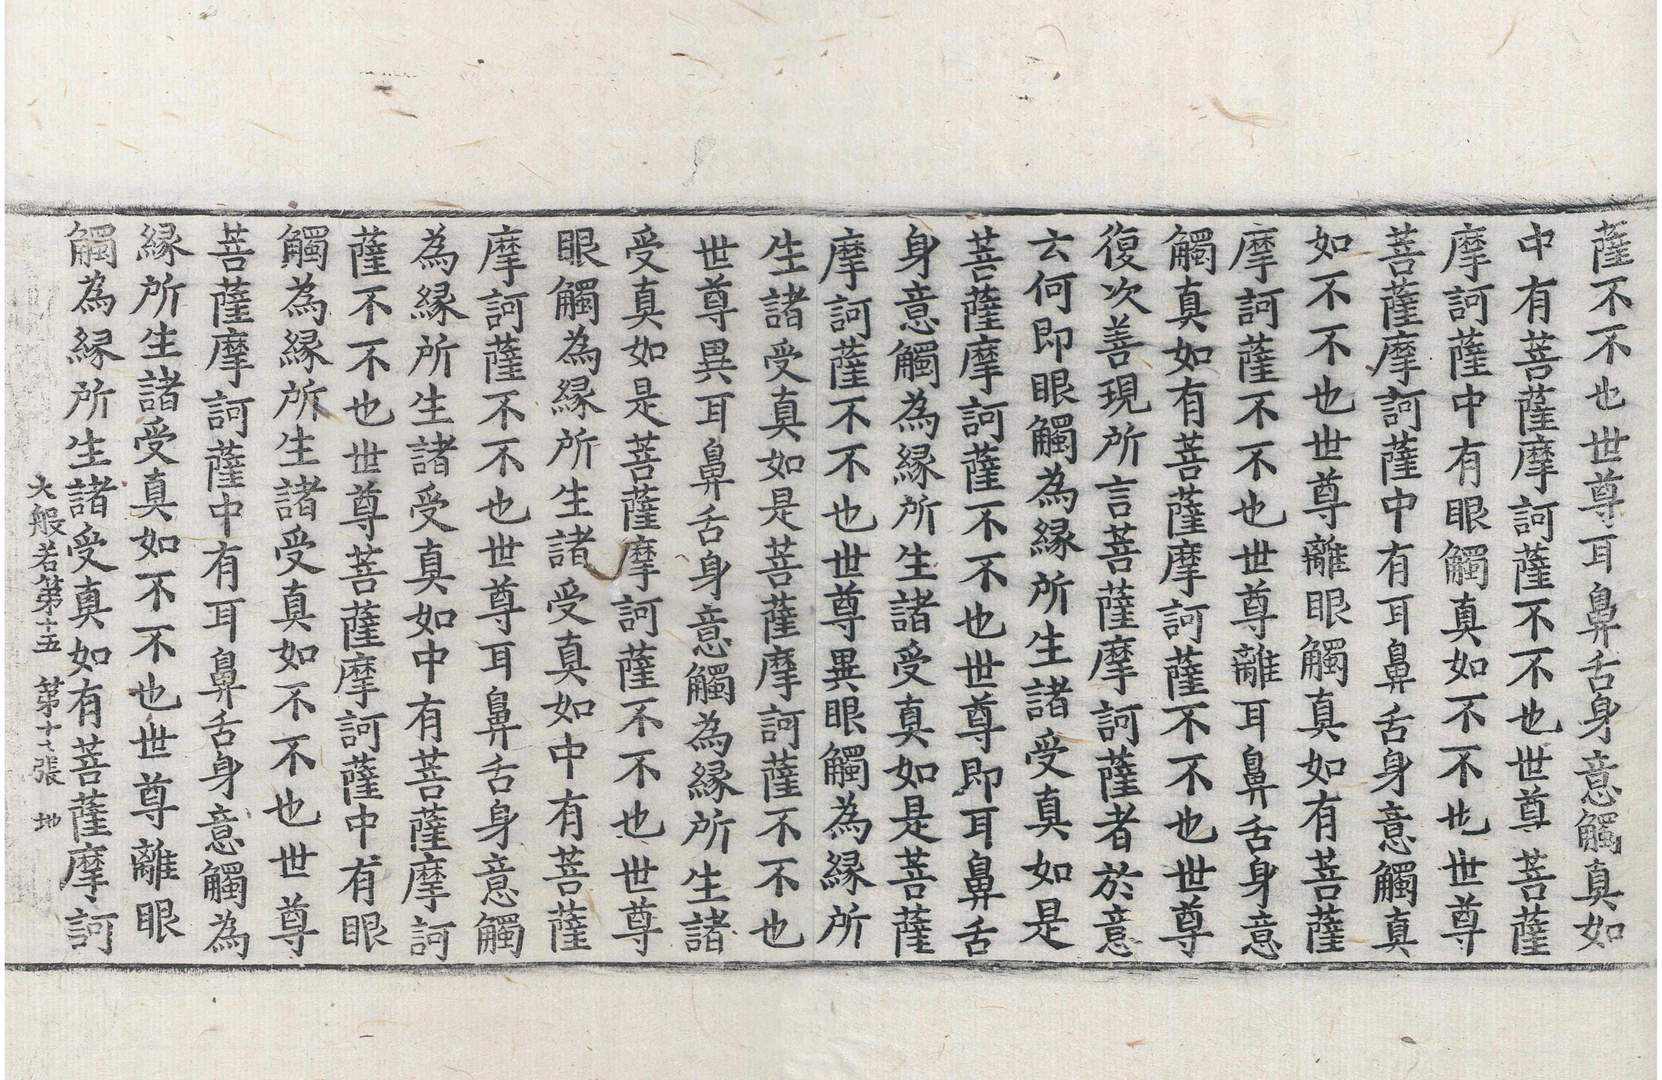 薩不不也世尊耳鼻舌身意觸真如
中有菩薩摩訶薩不不也世尊菩薩
摩訶薩中有眼觸真如不不也世尊
菩薩摩訶薩中有耳鼻舌身意觸真
如不不也世尊離眼觸真如有菩薩
摩訶薩不不也世尊離耳鼻舌身意
觸真如有菩薩摩訶薩不不也世尊
復次善現所言菩薩摩訶薩者於意
云何即眼觸為縁所生諸受真如是
菩薩摩訶薩不不也世尊即耳鼻舌
身意觸為縁所生諸受真如是菩薩
摩訶薩不不也世尊異眼觸為縁所
生諸受真如是菩薩摩訶薩不不也
世尊異耳鼻舌身意觸為縁所生諸
受真如是菩薩摩訶薩不不也世尊
眼觸為縁所生諸受真如中有菩薩
摩訶薩不不也世尊耳鼻舌身意觸
為縁所生諸受真如中有菩薩摩訶
薩不不也世尊菩薩摩訶薩中有眼
觸為縁所生諸受真如不不也世尊
菩薩摩訶薩中有耳鼻舌身意觸為
縁所生諸受真如不不也世尊離眼
觸為縁所生諸受真如有菩薩摩訶
大般若第十五 第十張 地